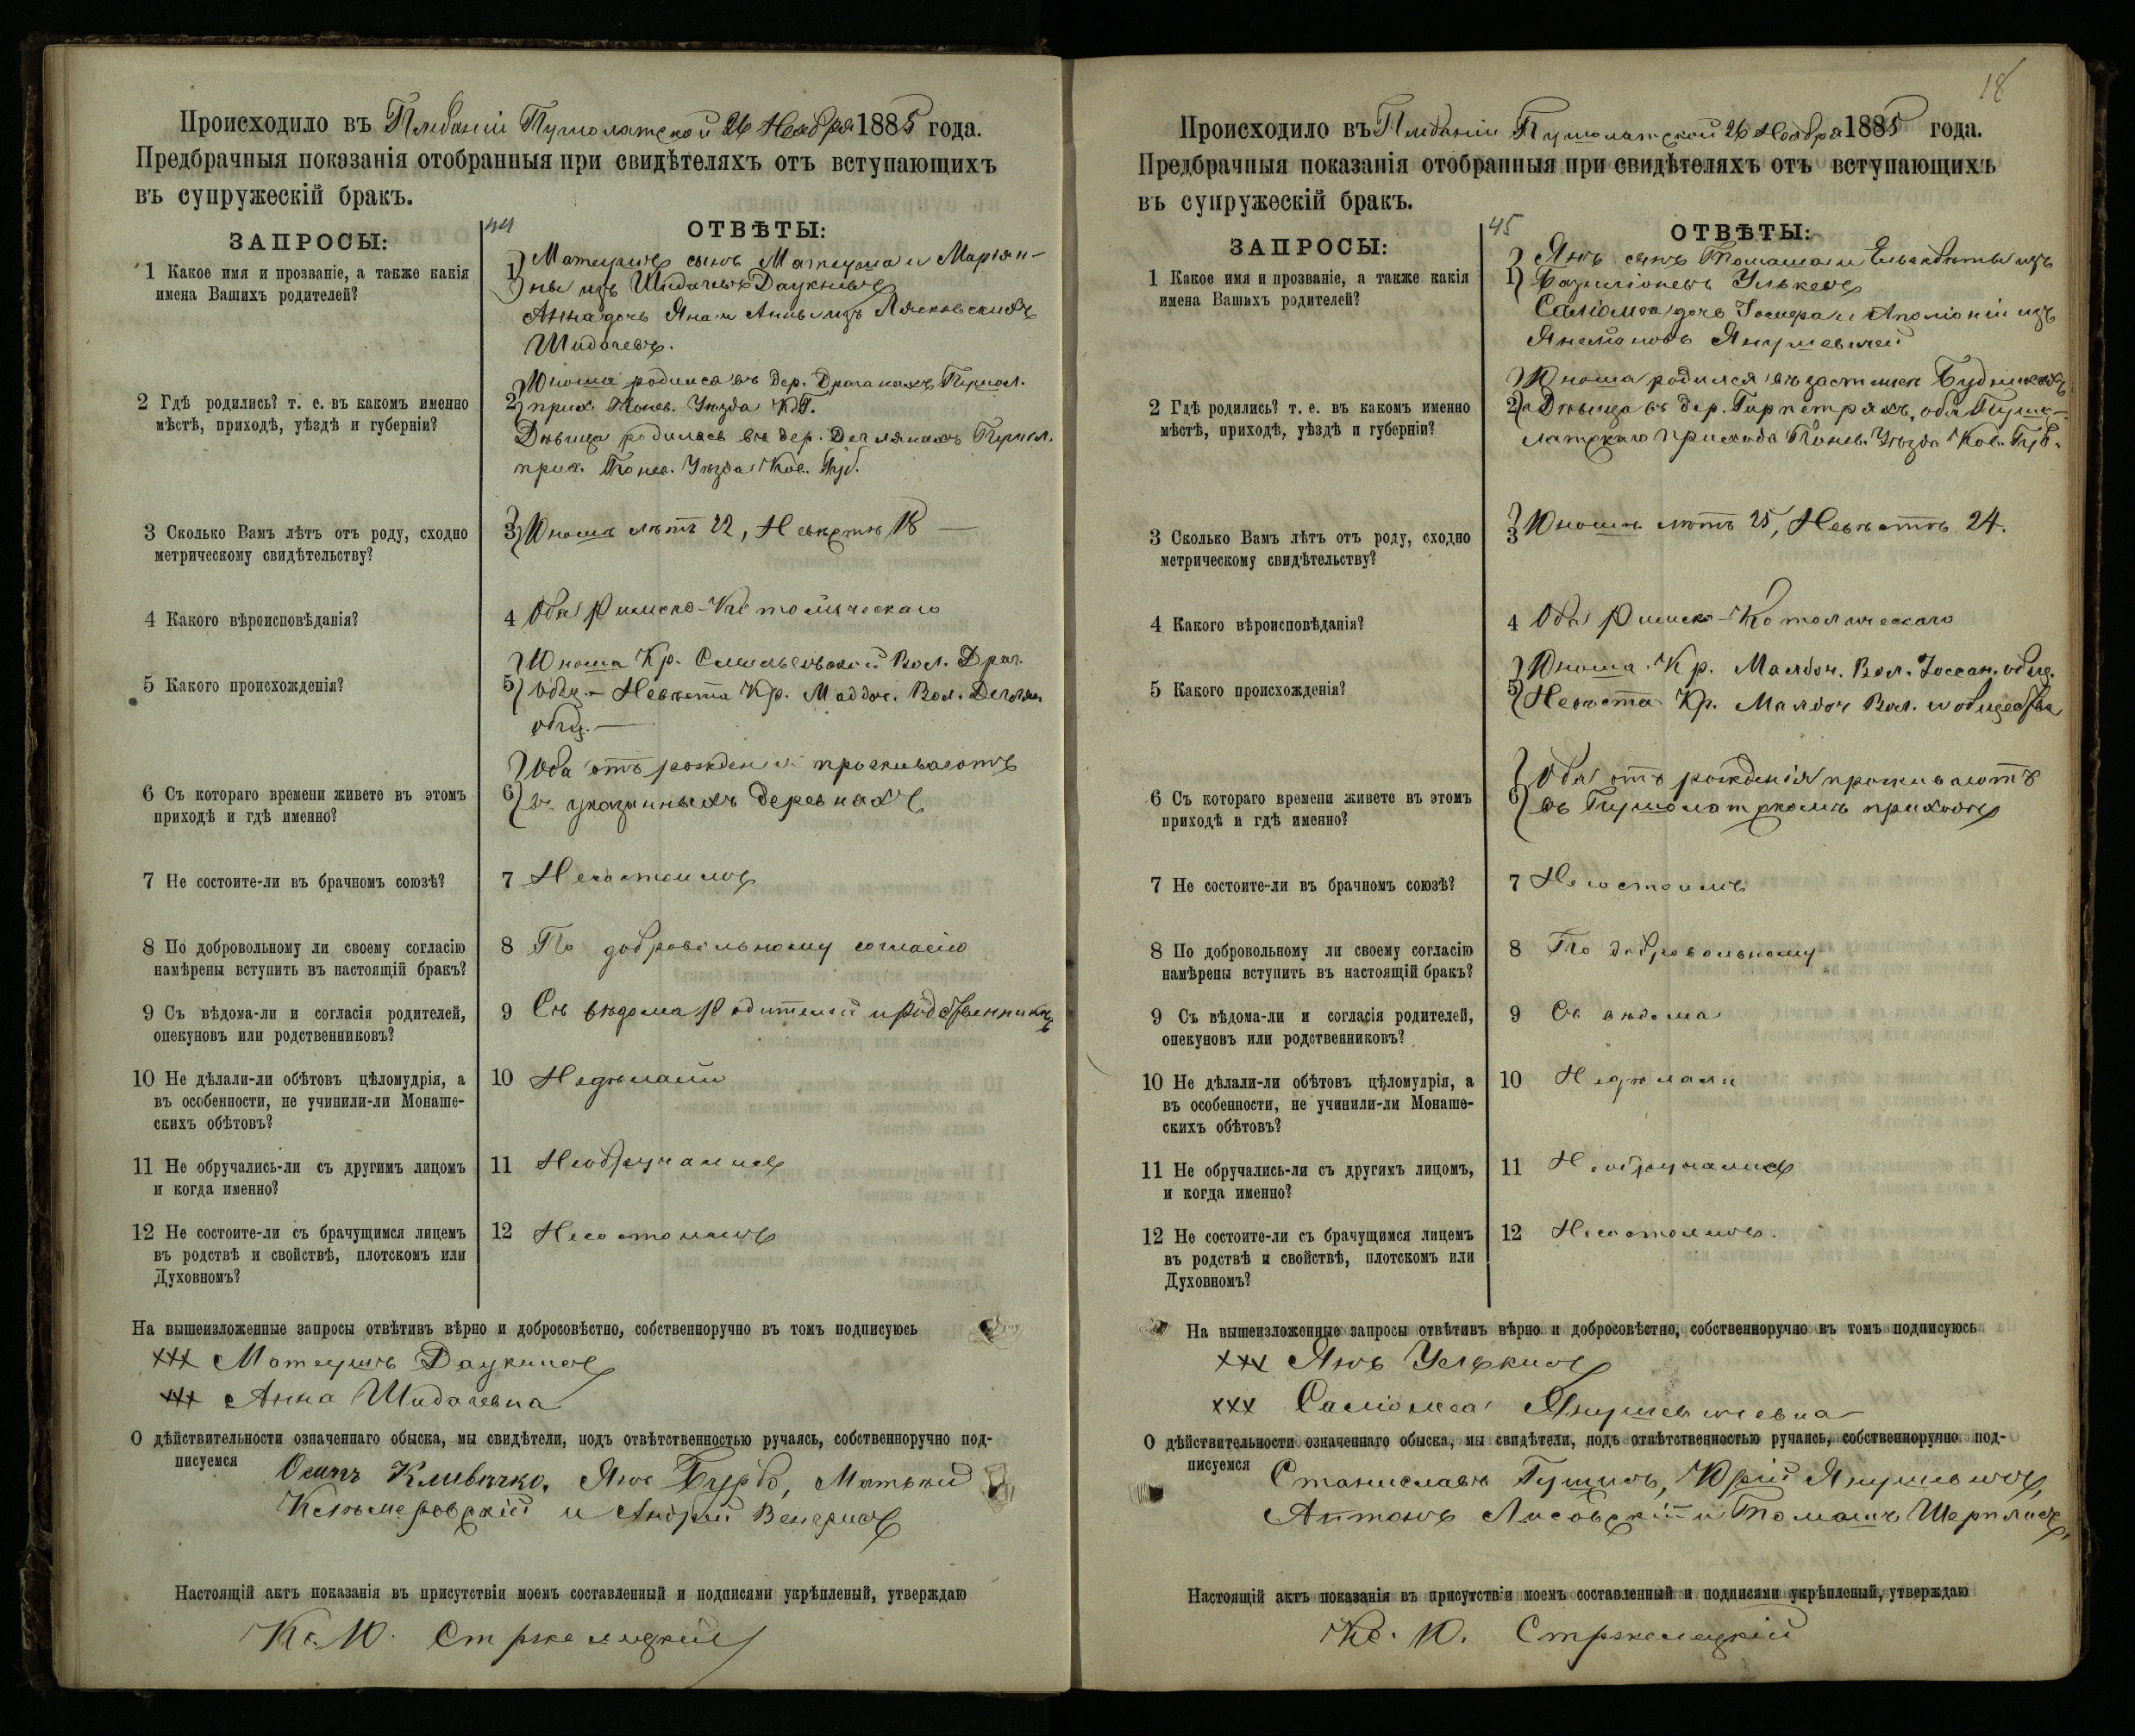 Происходило въ Плебаніи Пушолатской 26 Ноября 1885 года.
Предбрачныя показанія отобранныя при свидѣтеляхъ отъ вступающихъ
въ супружескій бракъ.
ЗАПРОСЫ:
44
ОТВѢТЫ:
1 Какое имя и прозваніе, а также какія
имена Вашихъ родителей?
1) Матеушъ сынъ Матеуша и Маріян-
ны изъ Шидачевъ
Анна дочь Яна и Анны изъ Лясковскихъ
2 Гдѣ родились? т. е. въ какомъ именно
мѣстѣ, приходѣ, уѣздѣ и губерніи?
2) Юноша родился въ дер. Пушол.
прих. Понев. Уѣзда
Дѣвица родилась въ дер. Пушол.
прих. Понев. Уѣзда Ков. Губ.
3 Сколько Вамъ лѣтъ отъ роду, сходно
метрическому свидѣтельству?
3) Юношѣ лѣтъ 22, Невѣстѣ 18
4 Какого вѣроисповѣданія?
4 Оба Римско-Католическаго
5 Какого происхожденія?
5) Юноша Кр. Вол. Драг.
общ. - Невѣста Кр. Вол.
общ. -
6 Съ котораго времени живете въ этомъ
приходѣ и гдѣ именно?
6) Оба отъ рожденія проживаютъ
въ указанныхъ деревнахъ
7 Не состоите-ли въ брачномъ союзѣ?
7 Несостоимъ
8 По добровольному ли своему согласію
намѣрены вступить въ настоящій бракъ?
8 По добровольному согласію
9 Съ вѣдома-ли и согласія родителей,
опекуновъ или родственниковъ?
9 Съ вѣдома Родителей и родственниковъ
10 Не дѣлали-ли обѣтовъ цѣломудрія, а
въ особенности, не учинили-ли Монаше-
скихъ обѣтовъ?
10 Недѣлали
11 Не обручались-ли съ другимъ лицомъ
и когда именно?
11 Необручались
12 Не состоите-ли съ брачущимся лицемъ
въ родствѣ и свойствѣ, плотскомъ или
Духовномъ?
12 Несостоимъ
На вышеизложенные запросы отвѣтивъ вѣрно и добросовѣстно, собственноручно въ томъ подписуюсь
ххх Матеушъ
ххх Анна Шидачевна
О дѣйствительности означеннаго обыска, мы свидѣтели, подъ отвѣтственностью ручаясь, собственноручно под-
писуемся Осипъ Янъ Матвѣй
и Андрей
Настоящій актъ показанія въ присутствіи моемъ составленный и подписями укрѣпленый, утверждаю
Кс. Ю. Стржелецкій
18
Происходило въ Плебаніи Пушолатской 26 Ноября 1885 года.
Предбрачныя показанія отобранныя при свидѣтеляхъ отъ вступающихъ
въ супружескій бракъ.
ЗАПРОСЫ:
45
ОТВѢТЫ:
1 Какое имя и прозваніе, а также какія
имена Вашихъ родителей?
1) Янъ сынъ Томаша и Ельжбѣты изъ
Саліомея дочь и Аполіоніи изъ
2 Гдѣ родились? т. е. въ какомъ именно
мѣстѣ, приходѣ, уѣздѣ и губерніи?
2) Юноша родился въ
а Дѣвица въ дер. оба Пушо-
латскаго прихода Понев. Уѣзда Ков. Губ.
3 Сколько Вамъ лѣтъ отъ роду, сходно
метрическому свидѣтельству?
3 Юношѣ лѣтъ 25, Невѣстѣ 24.
4 Какого вѣроисповѣданія?
4 Оба Римско-Католическаго
5 Какого происхожденія?
5) Юноша Кр. Вол. общ.
Невѣста Кр. Вол. и общества
6 Съ котораго времени живете въ этомъ
приходѣ и гдѣ именно?
6) Оба отъ рожденія проживаютъ
въ Пушолатскомъ приходѣ
7 Не состоите-ли въ брачномъ союзѣ?
7 Несостоимъ
8 По добровольному ли своему согласію
намѣрены вступить въ настоящій бракъ?
8 По добровольному
9 Съ вѣдома-ли и согласія родителей,
опекуновъ или родственниковъ?
9 Съ вѣдома
10 Не дѣлали-ли обѣтовъ цѣломудрія, а
въ особенности, не учинили-ли Монаше-
скихъ обѣтовъ?
10 Недѣлали
11 Не обручались-ли съ другихъ лицомъ,
и когда именно?
11 Необручались
12 Не состоите-ли съ брачущимся лицемъ
въ родствѣ и свойствѣ, плотскомъ или
Духовномъ?
12 Несостоимъ.
На вышеизложенные запросы отвѣтивъ вѣрно и добросовѣстно, собственноручно въ томъ подписуюсь
ххх Янъ
ххх Саліомея Янушевичевна
О дѣйствительности означеннаго обыска, мы свидѣтели, подъ отвѣтственностью ручаясь, собственноручно под-
писуемся Станиславъ Юрій
Антонъ Лисовскій и Томашъ
Настоящій актъ показанія въ присутствіи моемъ составленный и подписями укрѣпленый, утверждаю
Кс. Ю. Стржелецкій